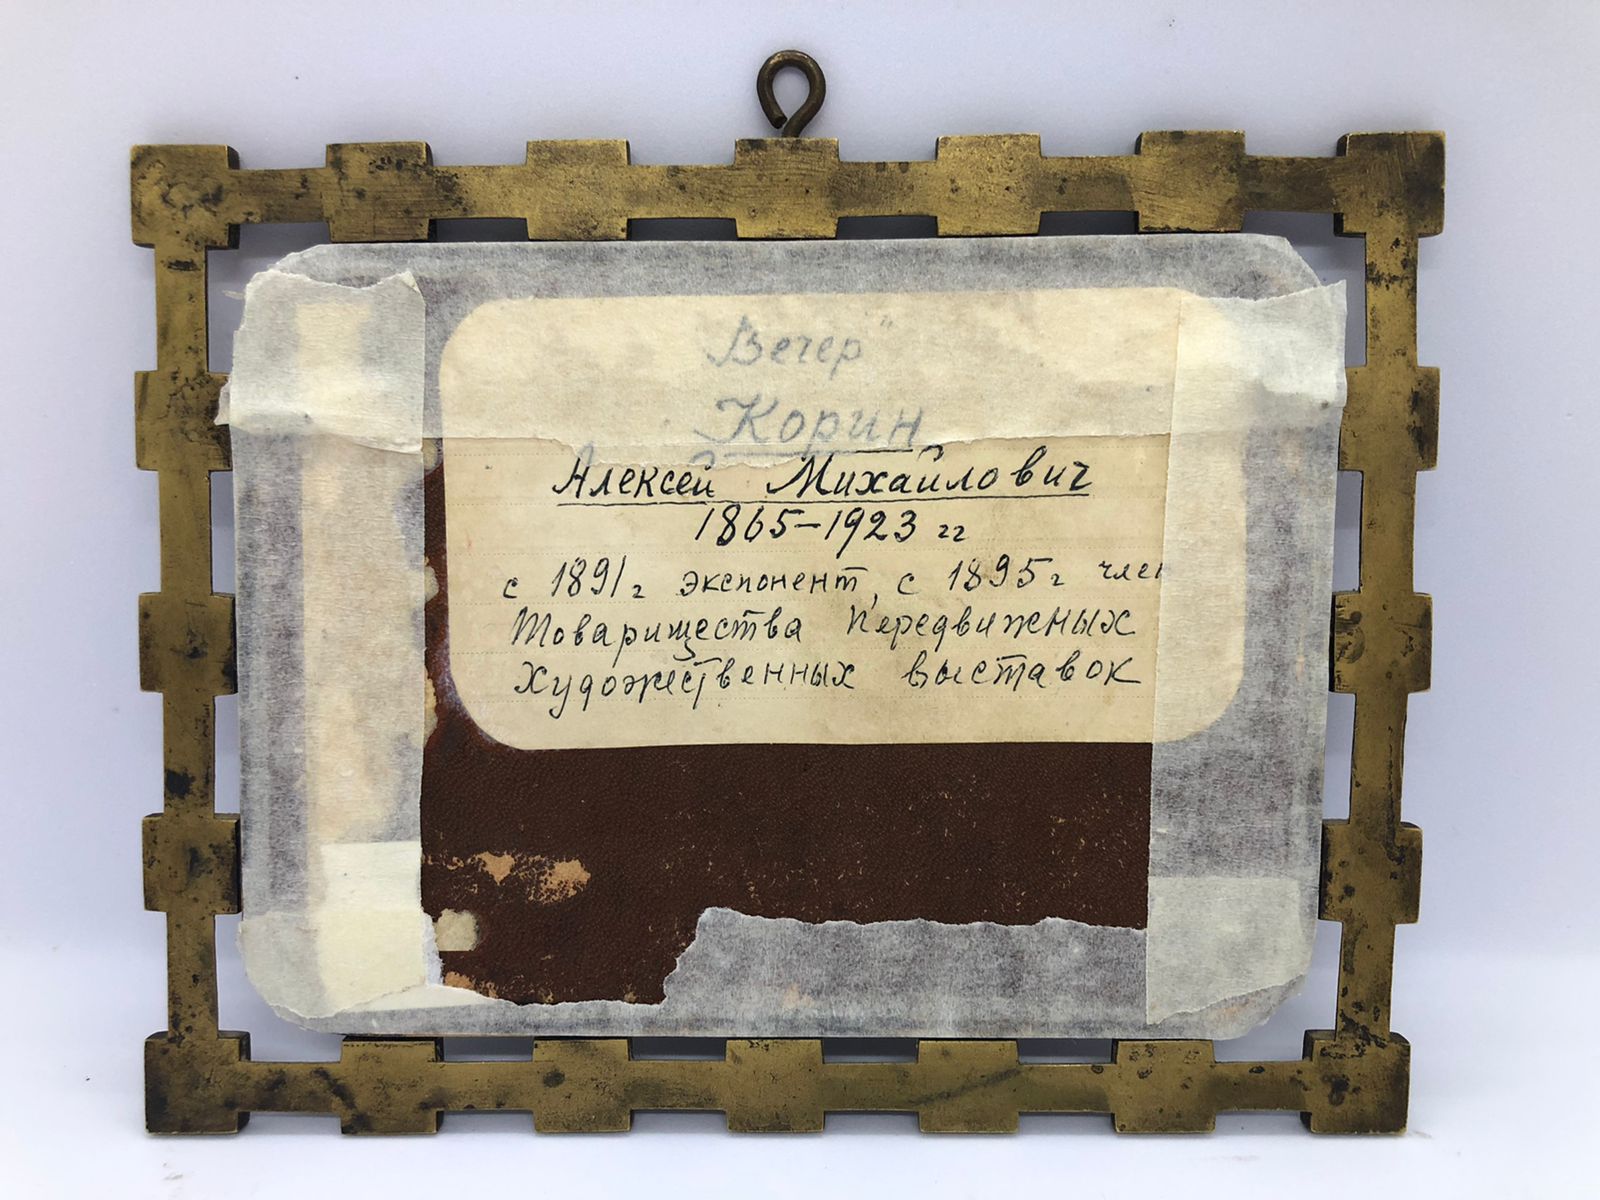 "Вечер"
Корин
Алексей Михайлович
1865-1923 гг
с 1891г экспонент, с 1895г член
Товарищества Передвижных
художественных выставок